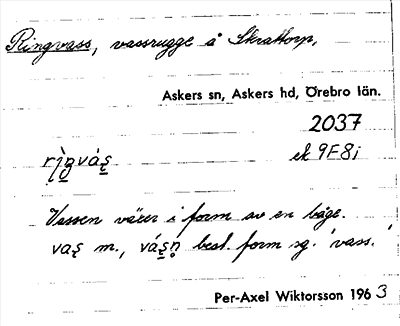 Ringvass, vassrugge å Skrattorp,
Askers sn, Askers hd, Örebro län.
2037
rìŋvás̨ ek 9F8i
Vassen växer i form av en båge.
vas̨ m., vás̨n̥ best. form sg. 'vass.'
Per-Axel Wiktorsson 1963